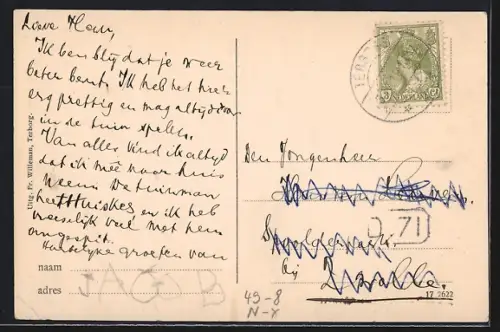 Lieve Han,
Ik ben blij dat je weer
beter bent. Ik heb het hier
erg prettig en mag altijd
in de tuin spelen.
Van alles vind ik altijd
dat ik mee naar huis
neem. De tuinman
heet Huiskes en ik heb
vreeselijk veel met hem
omgespit.
Hartelijke groeten van
naam
adres JACOB
Uitg. Fr. Willemsn, Terborg.
TERBORG
NEDERLAND
Den Jongenheer
D 71
bij Zwolle.
17 2622
49-8
N-X